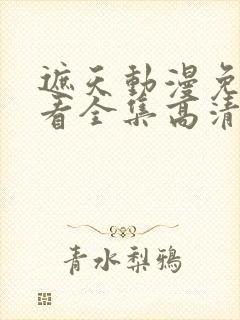 遮天動漫免
看全集高清
青水梨鴉